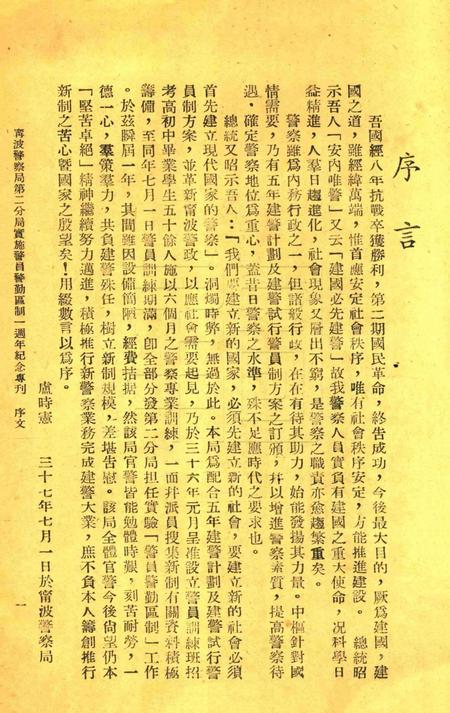 序言
吾國經八年抗戰卒獲勝利，第二期國民革命，終告成功，今後最大目的，厥爲建國，建
國之道，雖經緯萬端，惟首應安定社會秩序，唯有社會秩序安定，方能推進建設。　總統昭
示吾人「安內唯警」又云「建國必先建警」故我警察人員實負有建國之重大使命，况科學日
益精進，人羣日趨進化，社會現象又層出不窮，是警察之職責亦愈趨繁重矣。
警察雖爲內務行政之一，但諸般行政，在在有待其助力，始能發揚其力量。中樞針對國
情需要，乃有五年建警計劃及建警試行警員制方案之訂頒，幷以增進警察素質，提高警察待
遇，確定警察地位爲重心，蓋昔日警察之水準，殊不足應時代之要求也。
總統又昭示吾人：「我們要建立新的國家，必須先建立新的社會，要建立新的社會必須
首先建立現代國家的警察」。洞燭時弊，無過於此。本局爲配合五年建警計劃及建警試行警
員制方案，並革新甯波警政，以應社會需要起見，乃於三十六年元月呈准設立警員訓練班招
考高初中畢業學生五十餘人施以六個月之警察專業訓練，一面幷派員搜集新制有關資料積極
籌備，至同年七月一日警員訓練期滿，卽全部分發第二分局担任實驗「警員警勤區制」工作
。於茲瞬屆一年，其間雖因設備簡陋，經費拮据，然該局官警皆能勉體時艱，刻苦耐勞，一
德一心，羣策羣力，共負建警殊任，樹立新制規模，差堪告慰。該局全體官警今後尙望仍本
「堅苦卓絕」精神繼續努力邁進，積極推行新警察業務完成建警大業，庶不負本人籌創推行
新制之苦心暨國家之殷望矣！用綴數言以爲序。
盧時憲　三十七年七月一日於甯波警察局
甯波警察局第二分局實施警員警勤區制一週年紀念專刊　序文　一